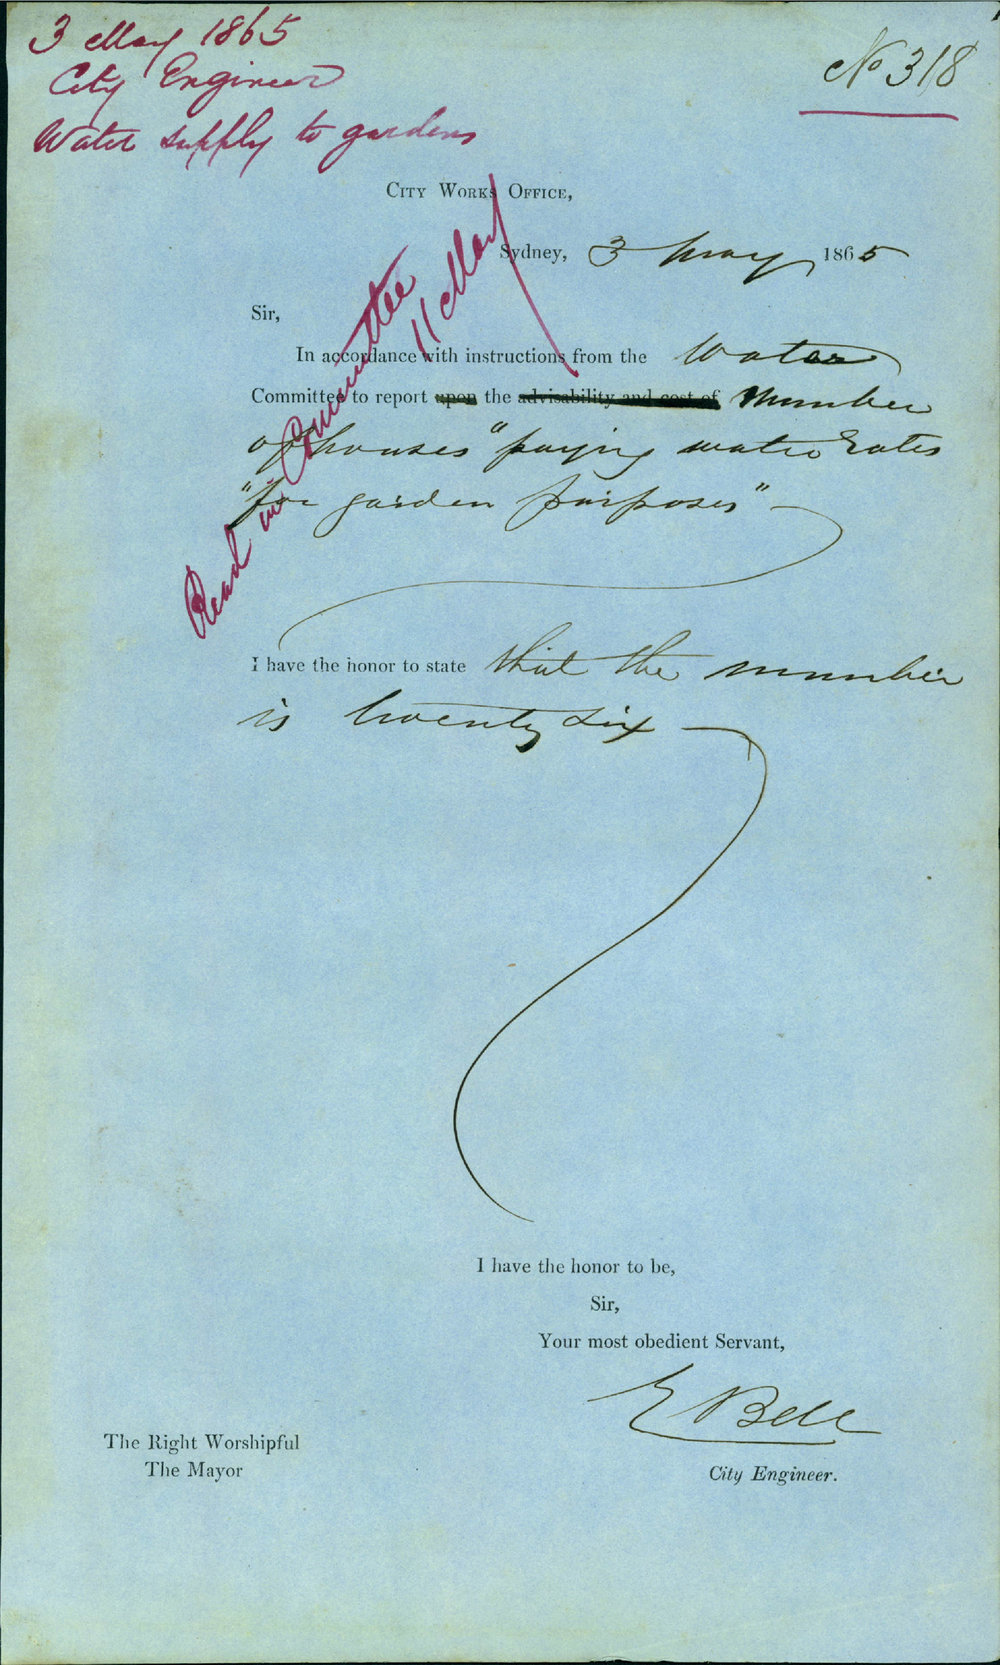 3 May 1865
City Engineer
Water supply to gardens
No 318
City Works Office,
Sydney, 3 May 1865
Read in Committee 11 May
Sir,
In accordance with instructions from the Water
Committee to report upon the advisability and cost of Number
of houses "paying water rates
"for garden purposes"
I have the honor to state that the number
is twenty six
I have the honor to be,
Sir,
Your most obedient Servant,
E Bell
City Engineer.
The Right Worshipful
The Mayor